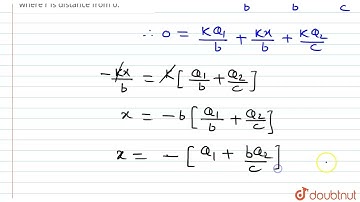 where r is distance from o.
b b c
∴ 0 = KQ1/b + Kx/b + KQ2/c
-Kx/b = K[Q1/b + Q2/c]
x = -b[Q1/b + Q2/c]
x = -[Q1 + bQ2/c]
doubtnut